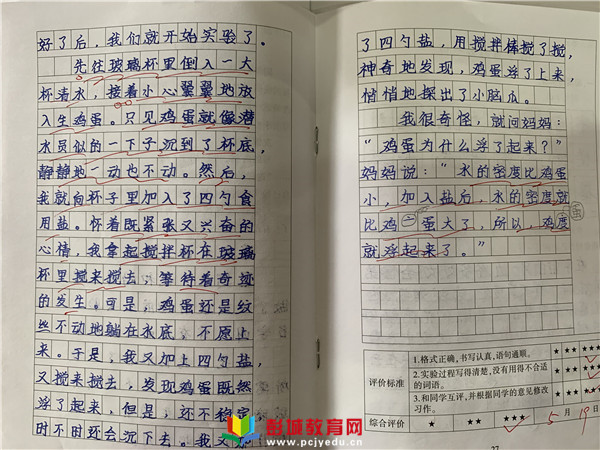 好了后，我们就开始实验了。
先往玻璃杯里倒入一大
杯清水，接着小心翼翼地放
入生鸡蛋。只见鸡蛋就像潜
水员似的一下子沉到了杯底，
静静地一动也不动。然后，
我就向杯子里加入了四勺食
用盐。怀着既紧张又兴奋的
心情，我拿起搅拌杯在玻璃
杯里搅来搅去，等待着奇迹
的发生。可是，鸡蛋还是纹
丝不动地躺在水底，不愿上
来。于是，我又加上四勺盐，
又搅来搅去，发现鸡蛋既然
浮了起来，但是，还不稳定，
时不时还会沉下去。我又加
了四勺盐，用搅拌棒搅了搅，
神奇地发现，鸡蛋浮了上来，
悄悄地探出了小脑瓜。
我很奇怪，就问妈妈：
“鸡蛋为什么浮了起来？”
妈妈说：“水的密度比鸡蛋
小，加入盐后，水的密度就
比鸡蛋大了，所以，鸡度
蛋
就浮起来了。”
评价标准
1.格式正确，书写认真，语句通顺。
★★★ ★★ ★
2.实验过程写得清楚，没有用得不合适
的词语。
★★★ ★★ ★
3.和同学互评，并根据同学的意见修改
习作。
★★★ ★★ ★
综合评价 ★ ★★ ★★★ 5月19日
27
彭城教育网
www.pcjyedu.cn